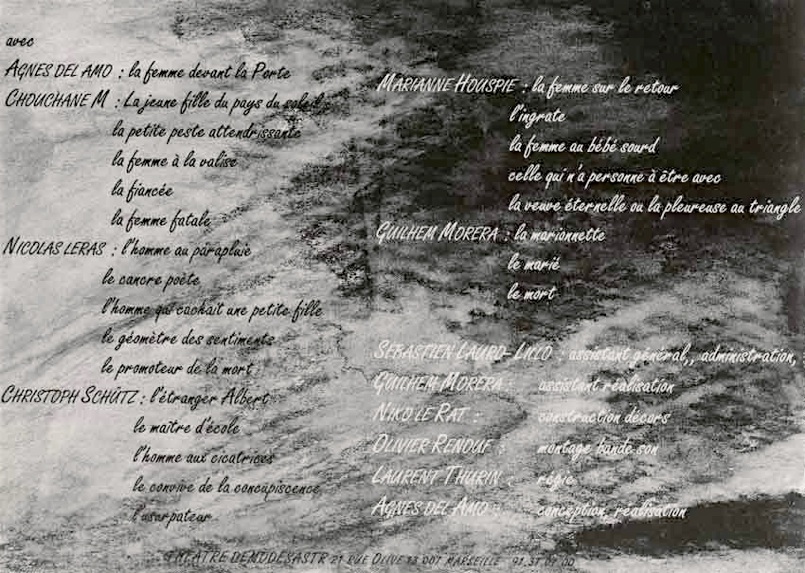 avec
AGNES DEL AMO : la femme devant la Porte
CHOUCHANE M : La jeune fille du pays du soleil
la petite peste attendrissante
la femme à la valise
la fiancée
la femme fatale
NICOLAS LERAS : l'homme au parapluie
le cancre poète
l'homme qui cachait une petite fille
le géomètre des sentiments
le promoteur de la mort
CHRISTOPH SCHÜTZ : l'étranger Albert
le maître d'école
l'homme aux cicatrices
le convive de la concupiscence
l'usurpateur
MARIANNE HOUSPIE : la femme sur le retour
l'ingrate
la femme au bébé sourd
celle qui n'a personne à être avec
la veuve éternelle ou la pleureuse au triangle
GUILHEM MORERA : la marionnette
le marié
le mort
SEBASTIEN LAURO-LILLO : assistant général,, administration,
GUILHEM MORERA assistant réalisation
NIKO LE RAT : construction décors
OLIVIER RENOUF : montage bande son
LAURENT THURIN : régie
AGNES DEL AMO : conception, réalisation
THEATRE DENUDESASTR 21 RUE OLIVE 13 001 MARSEILLE 91.37